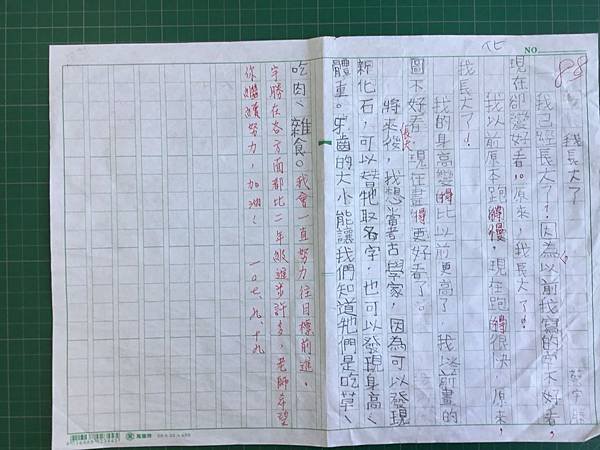 NO
88
我長大了
我已經長大了!因為以前我寫的字不好看,
現在卻變好看。原來,我長大了!
我以前原本跑得慢,現在跑得很快,原來,
我長大了!
我的身高變得比以前更高了,我以前畫的
圖不好看,現在畫得更好看了。
將來長大後,我想當考古學家,因為可以發現
新化石,可以替牠取名字,也可以發現身高、
體重。牙齒的大小能讓我們知道牠們是吃草、
吃肉、雜食。我會一直努力往目標前進。
宇勝在各方面都比二年級進步許多,老師希望
你繼續努力,加油!
一○七、九、十九